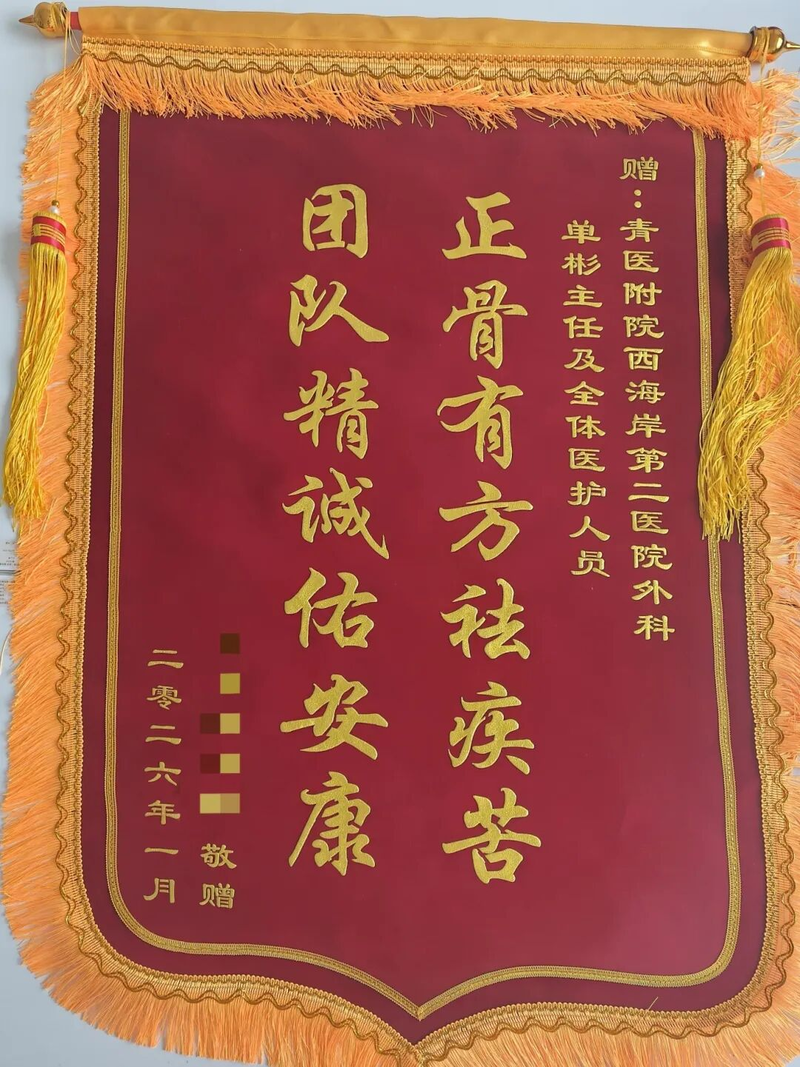 赠：青医附院西海岸第二医院外科
单彬主任及全体医护人员
正骨有方祛疾苦
团队精诚佑安康
敬赠
二零二六年一月